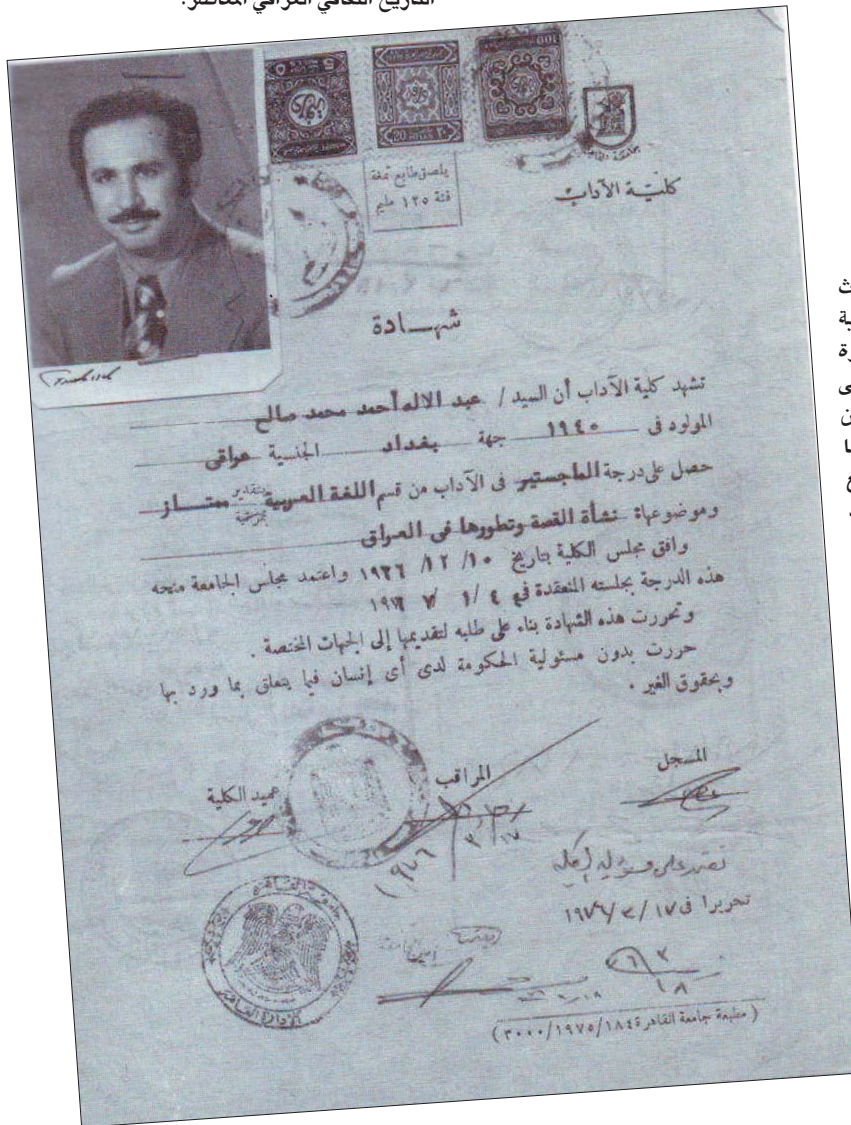 التاريخ الثقافي العراقي المعاصر.
100
20 ٢٠
5 ٥
يلصق طابع تمغة
فئة ١٢٥ مليم
كليـة الآداب
شهـــادة
تشهد كلية الآداب أن السيد / عبد الاله أحمد محمد صالح
المولود فى ١٩٤٠ جهة بغداد الجنسية عراقى
حصل على درجة الماجستير فى الآداب من قسم اللغة العربية بتقدير ممتــاز
وموضوعها: نشأة القصة وتطورها فى العراق
وافق مجلس الكلية بتاريخ ١٠ / ١٢ / واعتمد مجلس الجامعة منحه
هذه الدرجة بجلسته المنعقدة في ٤ / ١ /
وتحررت هذه الشهادة بناء على طلبه لتقديمها إلى الجهات المختصة .
حررت بدون مسئولية الحكومة لدى أى إنسان فيما يتعلق بما ورد بها
وبحقوق الغير .
المسجل
المراقب
عميد الكلية
١٩٧٦/٣/١٧
تحريرا فى ١٧ / ٣ / ١٩٧٦
( مطبعة جامعة القاهرة ١٨٤/١٩٧٥/٣٠٠٠ )
ث
ية
رة
ى
ن
ا
ع